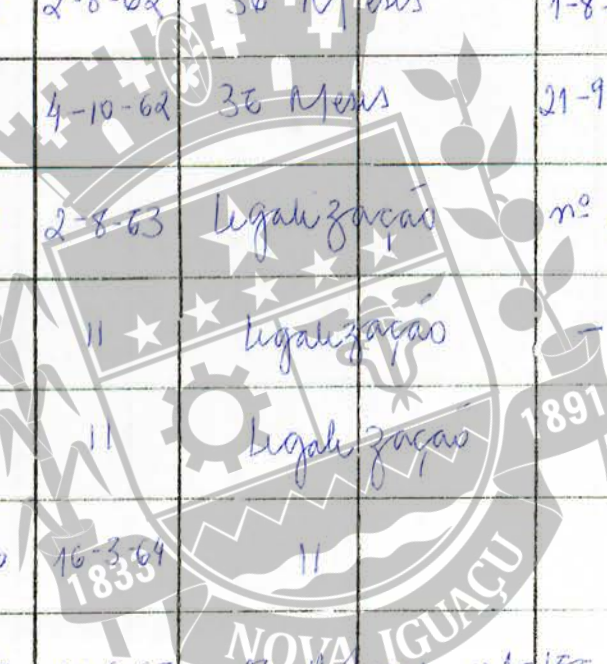 4-10-62 36 Meses 21-9
2-8-63 Legalização nº
11 Legalização -
11 Legalização
16-3-64 11
1833
1891
NOVA IGUAÇU